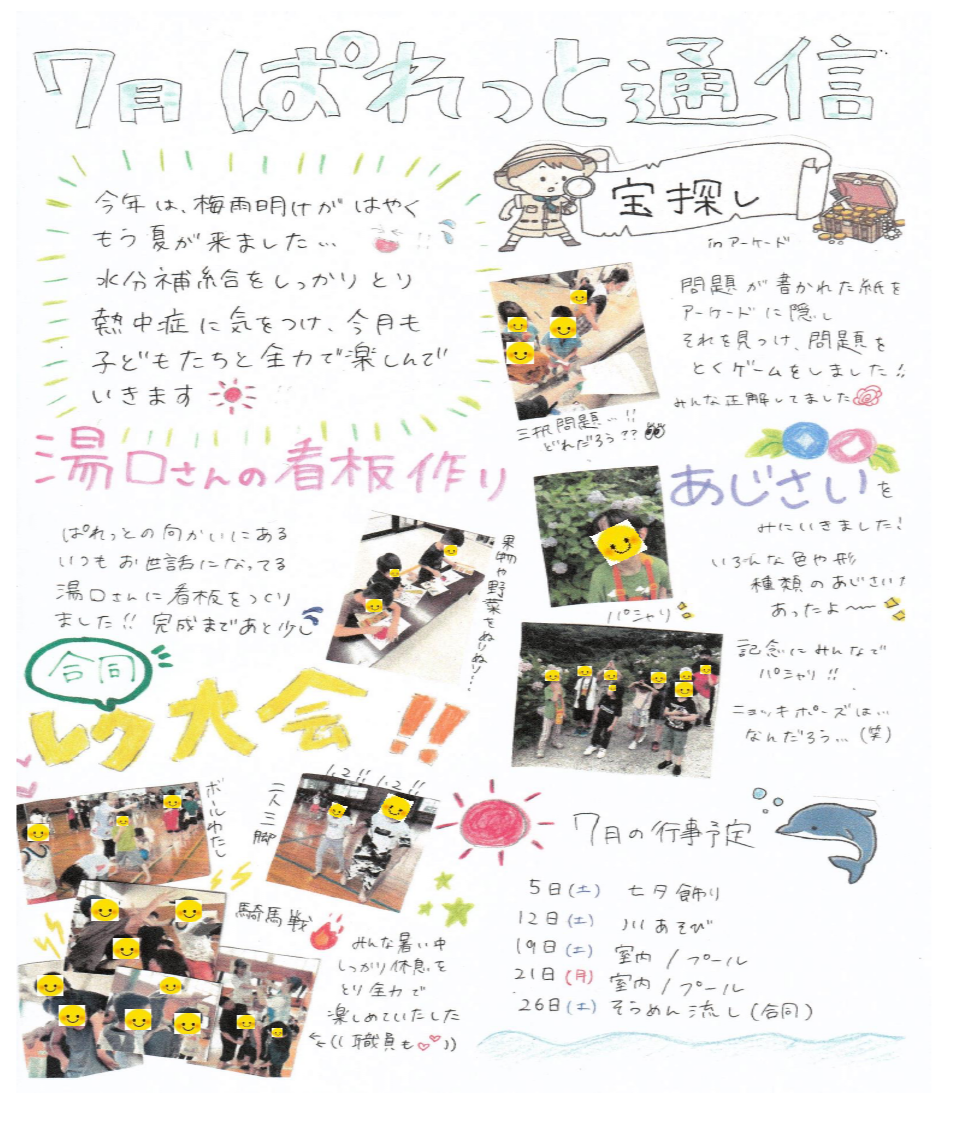 7月 ぱれっと通信
今年は、梅雨明けがはやく
もう夏が来ました…
水分補給をしっかりとり
熱中症に気をつけ、今月も
子どもたちと全力で楽しんで
いきます
宝探し
in アーケード
問題が書かれた紙を
アーケードに隠し
それを見つけ、問題を
とくゲームをしました!!
みんな正解してました
三択問題…!!
どれだろう??
湯口さんの看板作り
ぱれっとの向かいにある
いつもお世話になってる
湯口さんに看板をつくり
ました!! 完成まであと少し
果物や野菜をぬりぬり…
あじさいを
みにいきました!
いろんな色や形
種類のあじさいが
あったよ〜
パシャリ
記念にみんなで
パシャリ!!
ニョッキポーズは…
なんだろう…(笑)
合同
レク大会!!
ボールわたし
二人三脚
1,2!! 1,2!!
騎馬戦
みんな暑い中
しっかり休息を
とり全力で
楽しめていたした
((職員も))
7月の行事予定
5日(土) 七夕飾り
12日(土) 川あそび
19日(土) 室内/プール
21日(月) 室内/プール
26日(土) そうめん流し(合同)